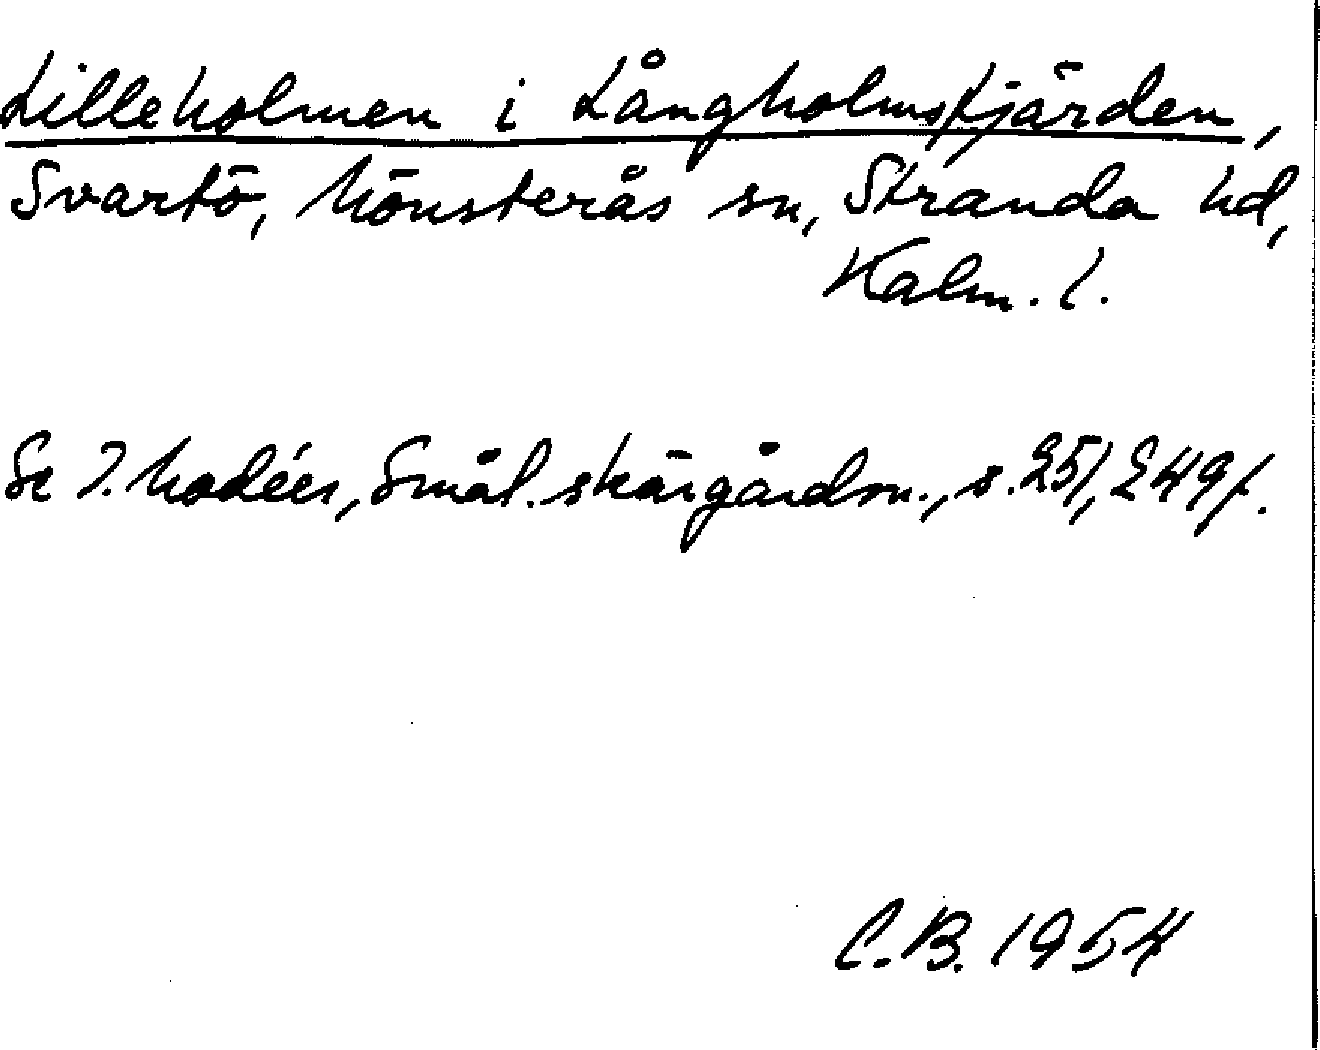 Lilleholmen i Långholmsfjärden,
Svartö, Mönsterås sn, Stranda hd,
Kalm. l.
Se I. Modéer, Smål. skärgårdsn., s. 251, 249 f.
C.B. 1954